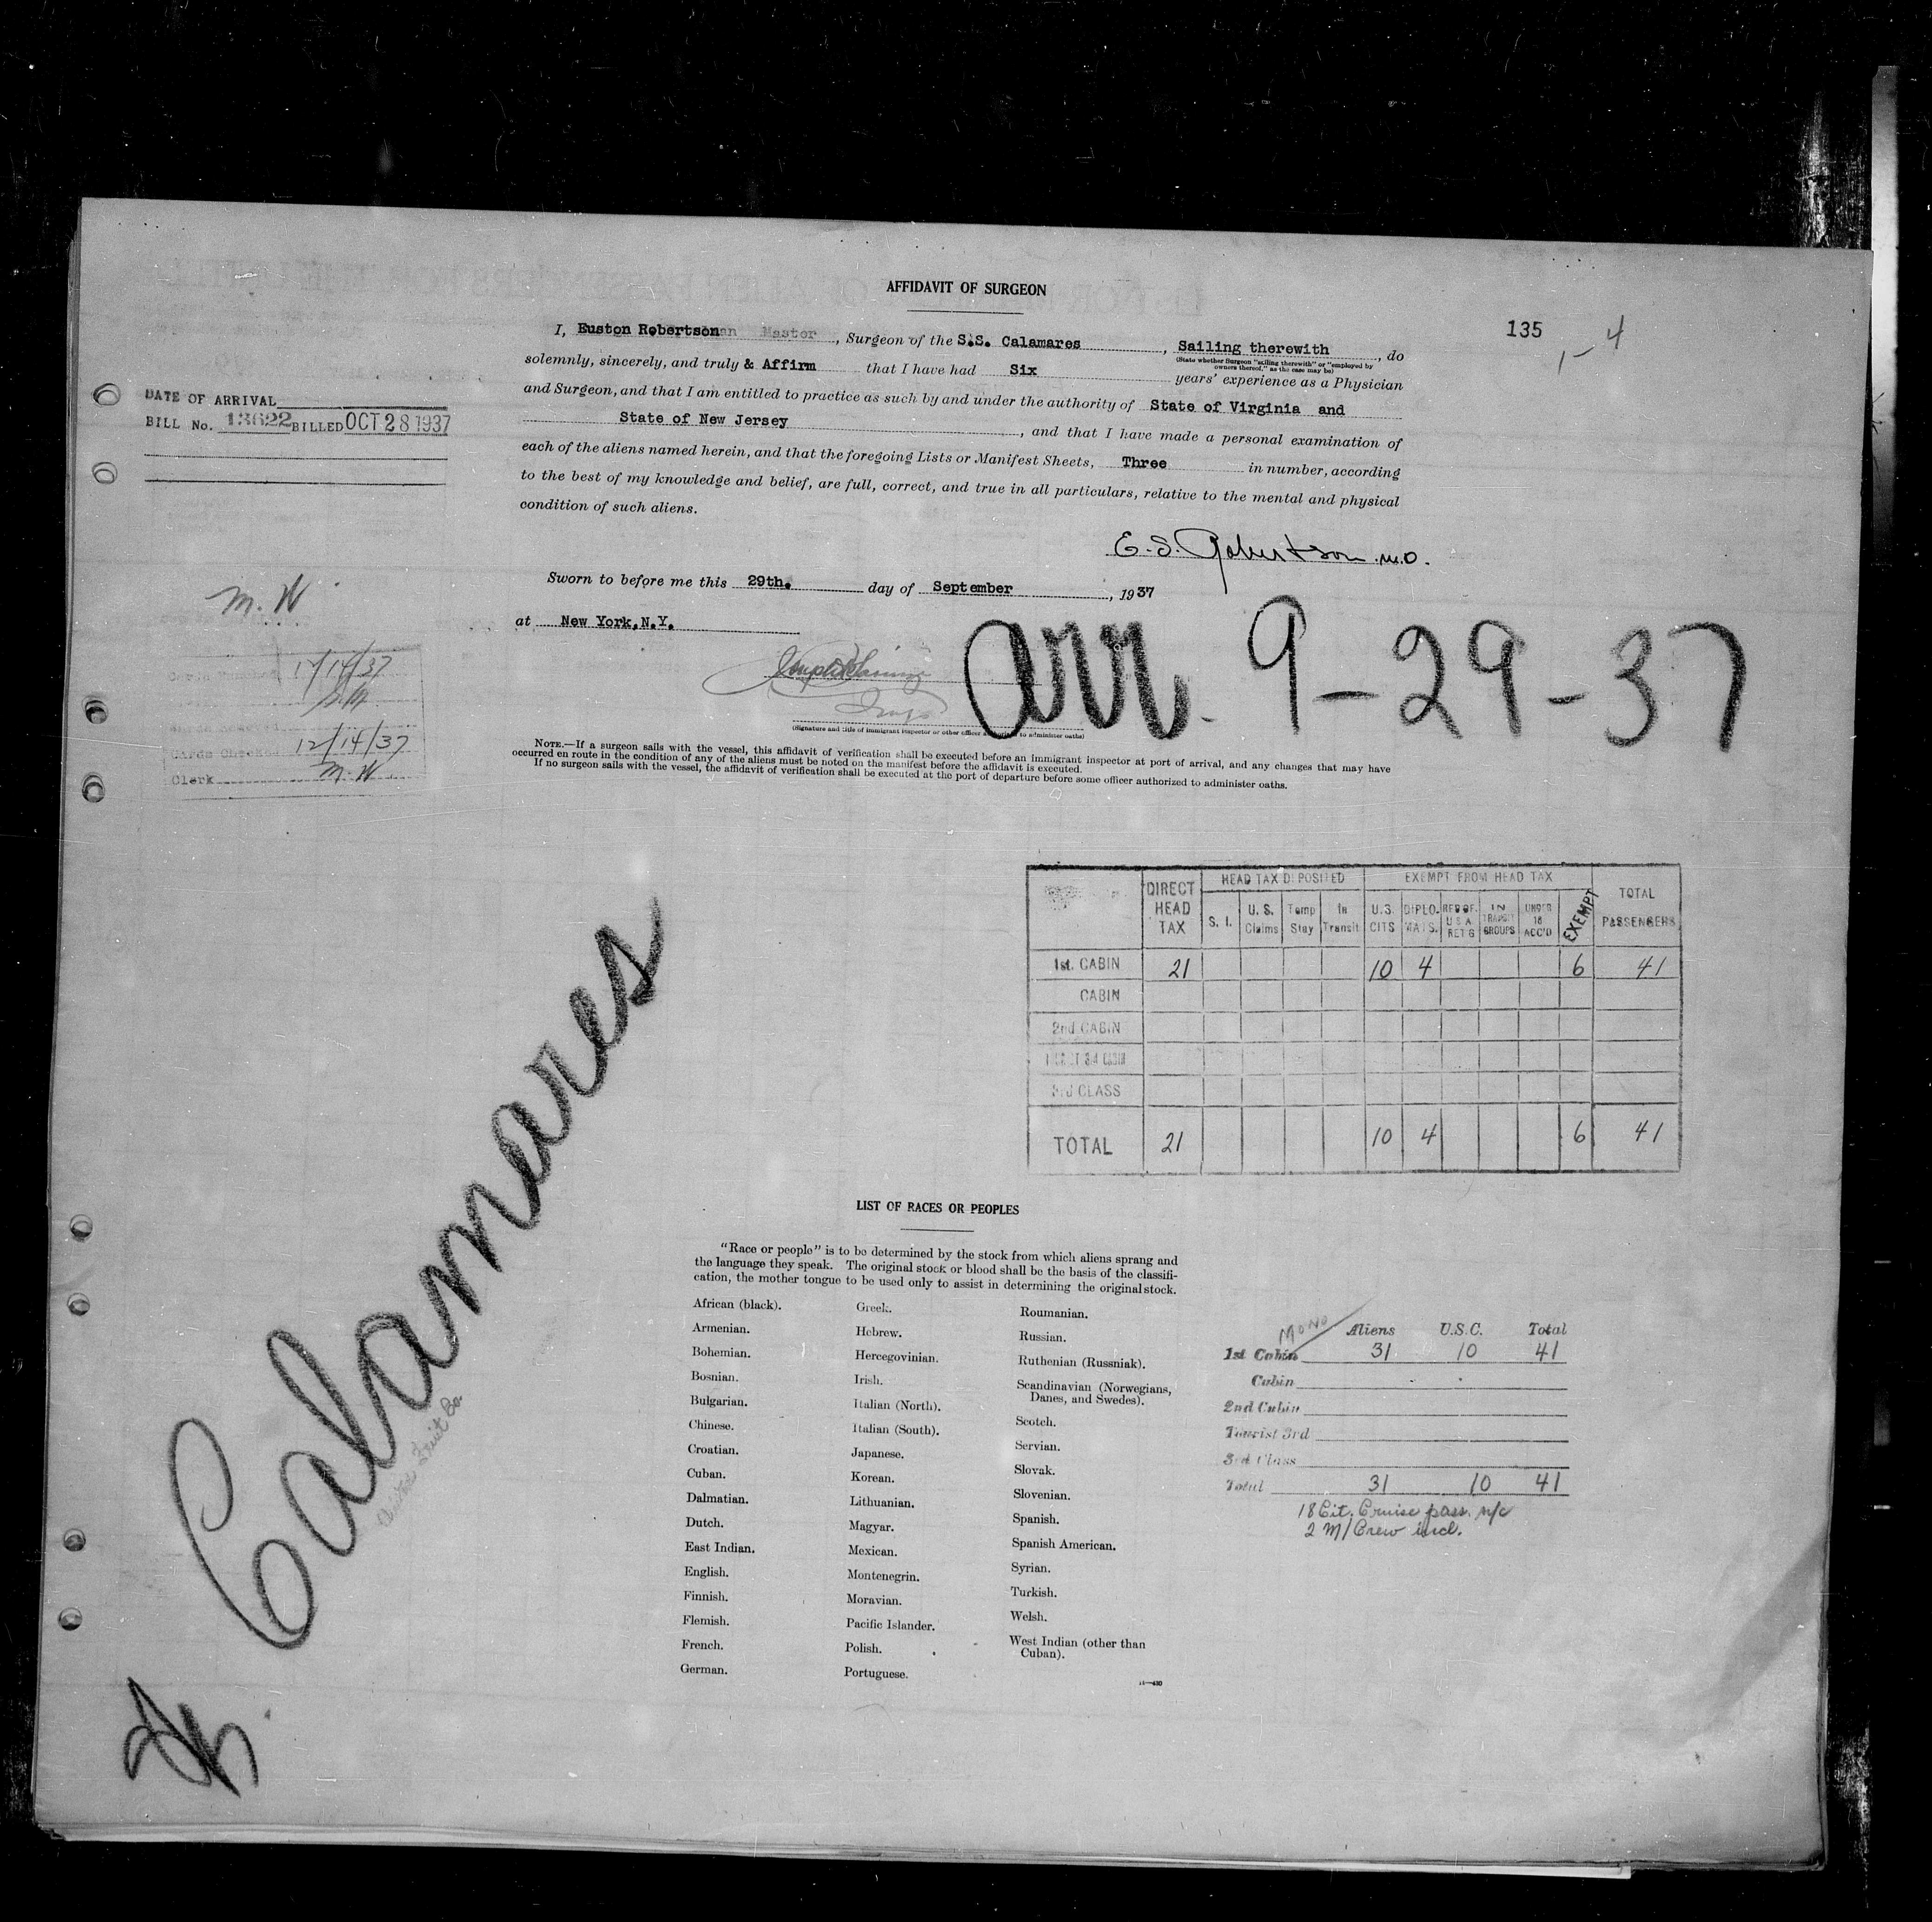 AFFIDAVIT OF SURGEON
135
1-4
I, Euston Robertson Master, Surgeon of the S.S. Calamares, Sailing therewith, do
(State whether Surgeon "sailing therewith" or "employed by owners thereof," as the case may be)
solemnly, sincerely, and truly & Affirm that I have had Six years' experience as a Physician
and Surgeon, and that I am entitled to practice as such by and under the authority of State of Virginia and
State of New Jersey, and that I have made a personal examination of
each of the aliens named herein, and that the foregoing Lists or Manifest Sheets, Three in number, according
to the best of my knowledge and belief, are full, correct, and true in all particulars, relative to the mental and physical
condition of such aliens.
E. S. Robertson M.D.
Sworn to before me this 29th. day of September, 1937
at New York, N.Y.
(Signature and title of immigrant inspector or other officer to administer oaths)
arr. 9-29-37
NOTE.—If a surgeon sails with the vessel, this affidavit of verification shall be executed before an immigrant inspector at port of arrival, and any changes that may have
occurred en route in the condition of any of the aliens must be noted on the manifest before the affidavit is executed.
If no surgeon sails with the vessel, the affidavit of verification shall be executed at the port of departure before some officer authorized to administer oaths.
DATE OF ARRIVAL
BILL No. 13622 BILLED OCT 28 1937
M. W
12/14/37
Cards Checked 12/14/37
Clerk M. W.
DIRECT HEAD TAX
HEAD TAX DEPOSITED
S. I. U. S. Claims Temp Stay In Transit
EXEMPT FROM HEAD TAX
U.S. CITS DIPLO-MATS. RES OF U S A RET'G IN TRANSIT GROUPS UNDER 16 ACC'D EXEMPT
TOTAL PASSENGERS
1st. CABIN 21 10 4 6 41
CABIN
2nd CABIN
3rd CLASS
TOTAL 21 10 4 6 41
Calamares
LIST OF RACES OR PEOPLES
"Race or people" is to be determined by the stock from which aliens sprang and
the language they speak. The original stock or blood shall be the basis of the classifi-
cation, the mother tongue to be used only to assist in determining the original stock.
African (black).
Armenian.
Bohemian.
Bosnian.
Bulgarian.
Chinese.
Croatian.
Cuban.
Dalmatian.
Dutch.
East Indian.
English.
Finnish.
Flemish.
French.
German.
Greek.
Hebrew.
Hercegovinian.
Irish.
Italian (North).
Italian (South).
Japanese.
Korean.
Lithuanian.
Magyar.
Mexican.
Montenegrin.
Moravian.
Pacific Islander.
Polish.
Portuguese.
Roumanian.
Russian.
Ruthenian (Russniak).
Scandinavian (Norwegians,
Danes, and Swedes).
Scotch.
Servian.
Slovak.
Slovenian.
Spanish.
Spanish American.
Syrian.
Turkish.
Welsh.
West Indian (other than
Cuban).
MONO
Aliens U.S.C. Total
1st Cabin 31 10 41
Cabin
2nd Cabin
Tourist 3rd
3rd Class
Total 31 10 41
18 Cit. Cruise pass. n/c
2 M/Crew incl.